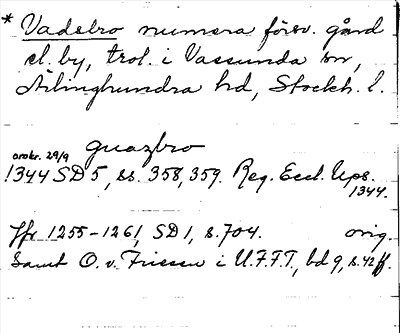 * Vadsbro numera försv. gård
el. by, trol. i Vassunda sn,
Ärlinghundra hd, Stockh. l.
guazbro
omkr. 29/9
1344 SD 5, ss. 358, 359. Reg. Eccl. Ups.
1344.
Jfr 1255-1261, SD 1, s. 704. orig.
Samt O. v. Friesen i U.F.F.T., bd 9, s. 42 ff.